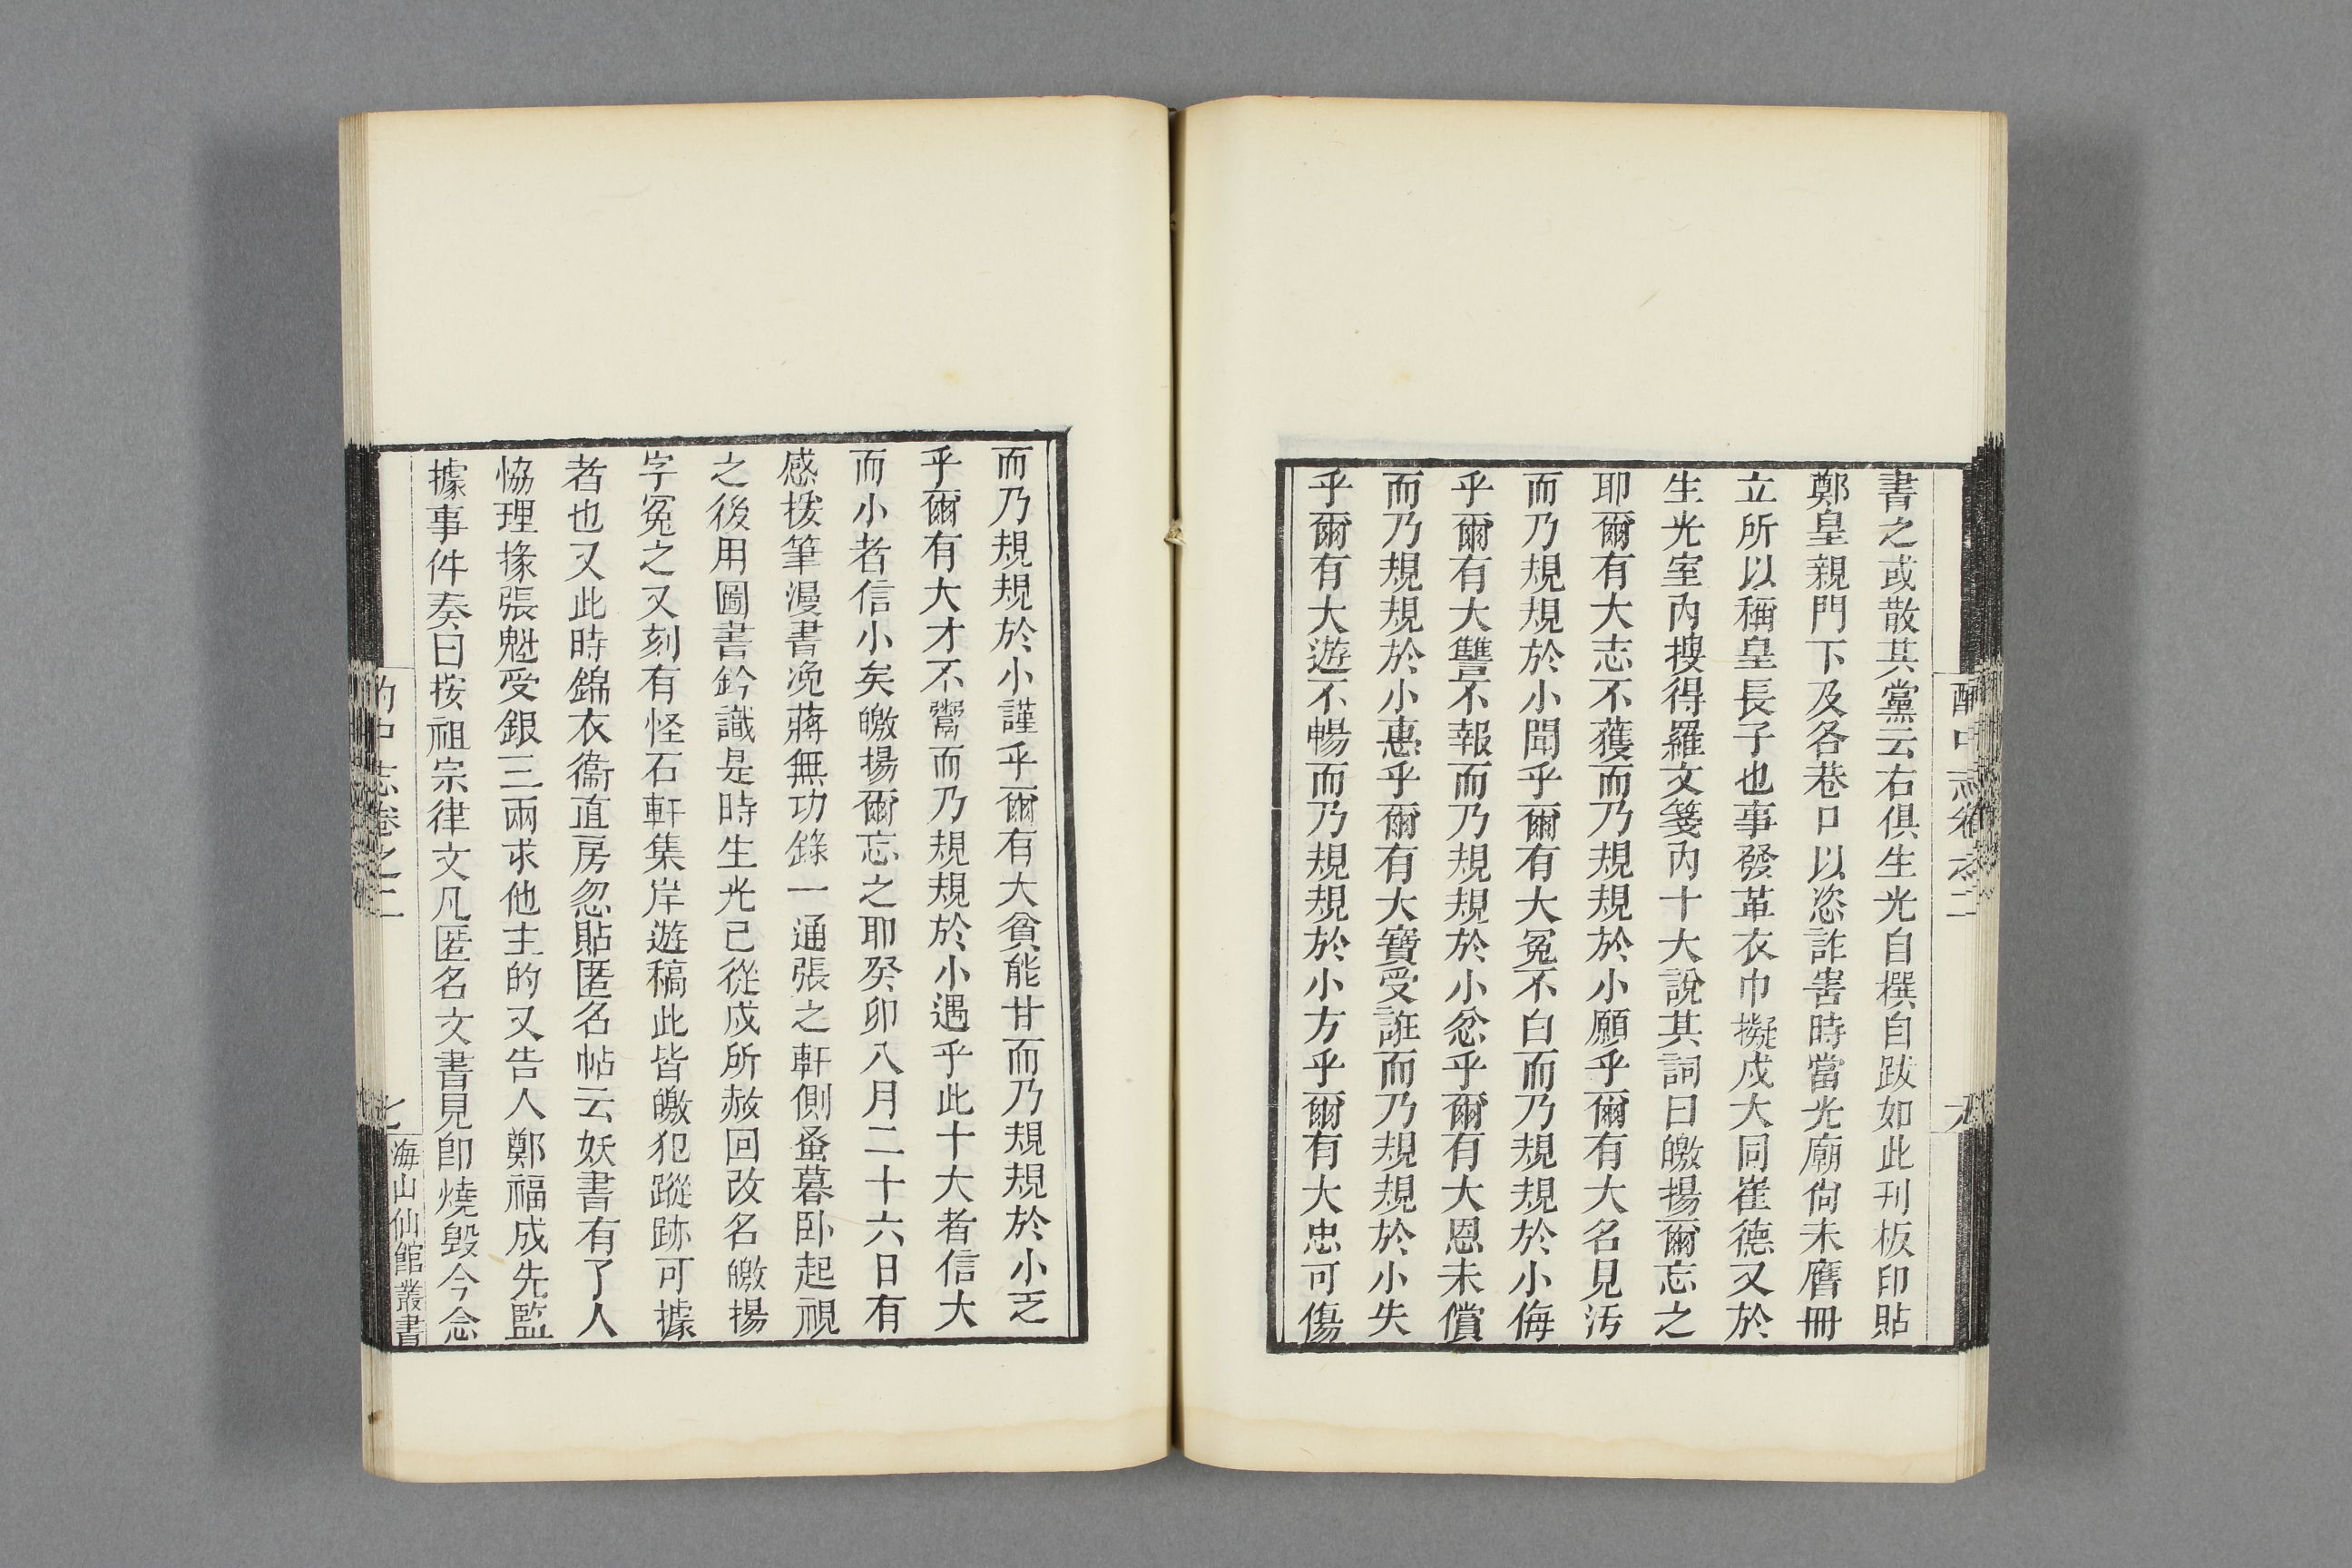 書之或散其黨云右俱生光自撰自跋如此刊板印貼
鄭皇親門下及各巷口以恣詐害時當光廟尙未膺冊
立所以稱皇長子也事發革衣巾擬戍大同崔德又於
生光室內搜得羅文箋內十大說其詞曰皦揚爾忘之
耶爾有大志不獲而乃規規於小願乎爾有大名見汚
而乃規規於小聞乎爾有大冤不白而乃規規於小侮
乎爾有大讐不報而乃規規於小忿乎爾有大恩未償
而乃規規於小惠乎爾有大寶受誑而乃規規於小失
乎爾有大遊不暢而乃規規於小方乎爾有大忠可傷
而乃規規於小謹乎爾有大貧能甘而乃規規於小乏
乎爾有大才不鬻而乃規規於小遇乎此十大者信大
而小者信小矣皦揚爾忘之耶癸卯八月二十六日有
感拨筆漫書浼蔣無功錄一通張之軒側蚤暮卧起視
之後用圖書鈐識是時生光已從戍所赦回改名皦揚
字冤之又刻有怪石軒集岸遊稿此皆皦犯蹤跡可據
者也又此時錦衣衞直房忽貼匿名帖云妖書有了人
恊理掾張魁受銀三兩求他主的又告人鄭福成先監
據事件奏曰按祖宗律文凡匿名文書見卽燒毀今念
酌中志卷之二
七
海山仙館叢書